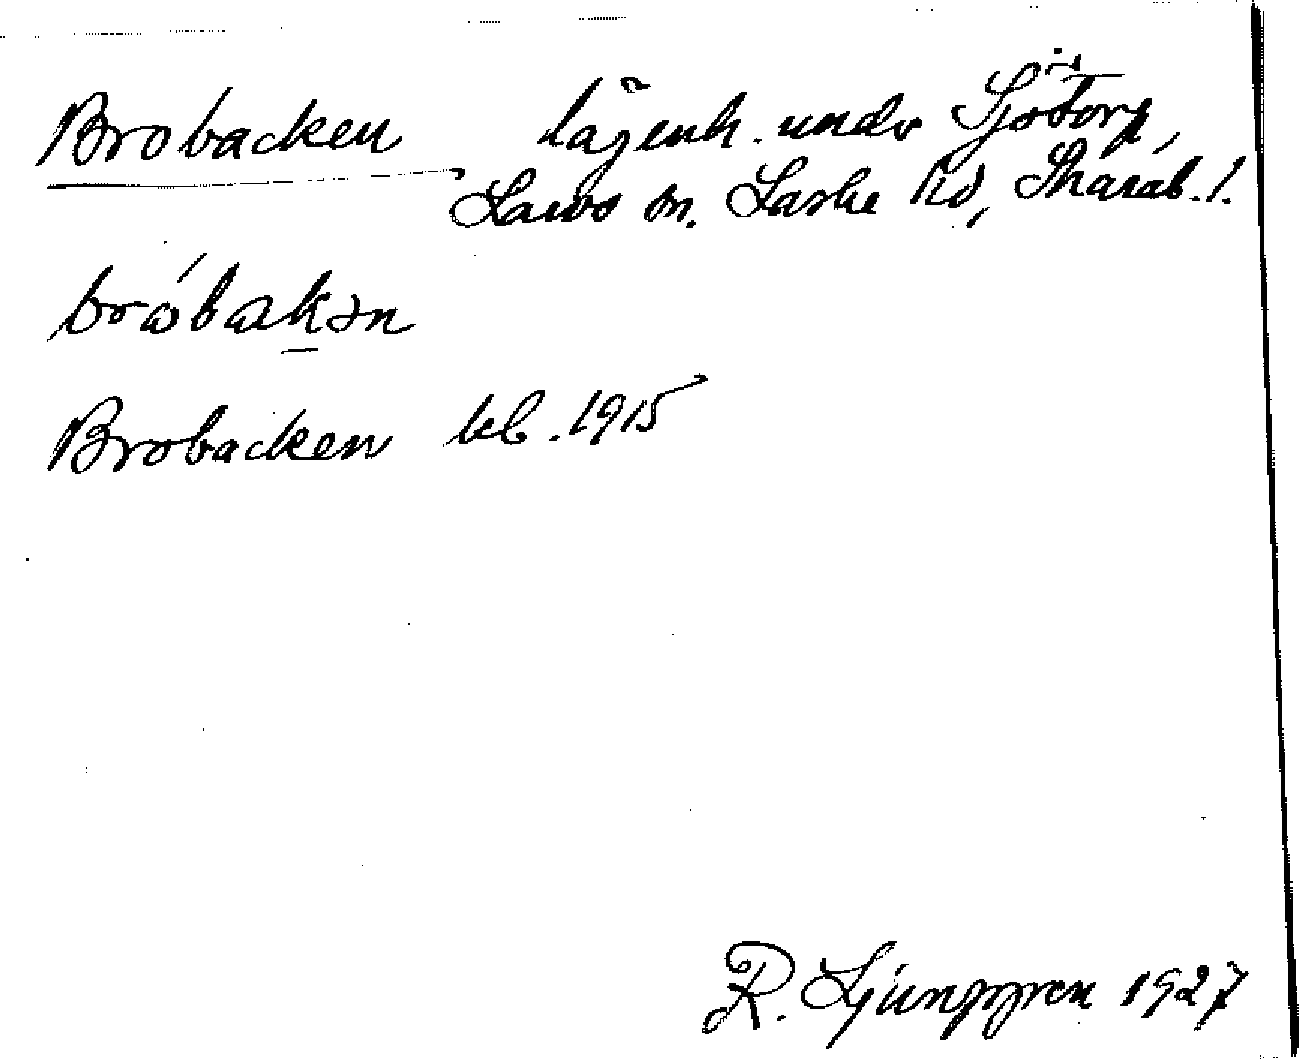 Brobacken lägenh. under Sjötorp,
Larvs sn. Laske hd, Skarab. l.
bròbakən
Brobacken kb. 1915
R. Ljunggren 1927